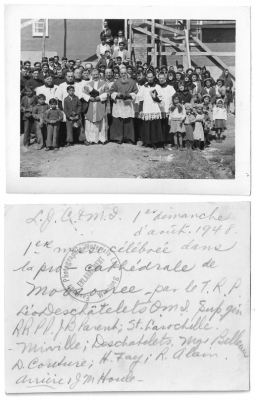 L.J.C. & M.I. 1er dimanche
d'août. 1948.
1ère messe célébrée dans
la pro-cathédrale de
par le T.R.P.
Léo Deschâtelets O.M.I. Sup. gén
RR.PP. J.B. Parent; St. Larochelle
- Miville; Deschatelets, Mgr Belleau
D. Couture; H. Fay; R. Alain
Arrière: J.M. Houde -